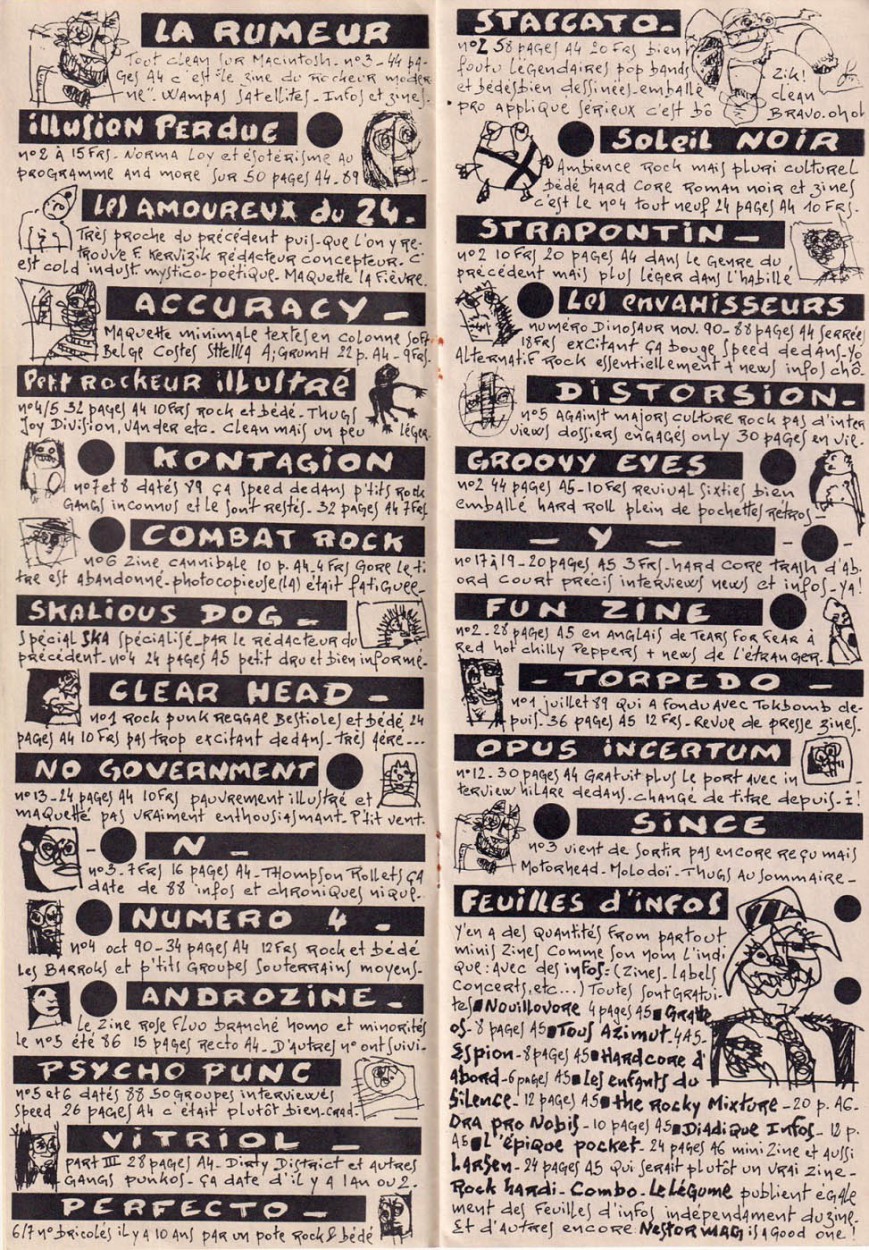 LA RUMEUR
Tout clean sur Macintosh. n°3 - 44 pa-
ges A4 c'est le zine du rockeur moder
ne". Wampas Satellites - Infos et zines.
illusion Perdue
n°2 à 15 Frs. Norma Loy et ésotérisme au
programme and more sur 50 pages A4. 89
Les AMOUREUX du 24.
Très proche du précédent puis-que l'on y re-
trouve F. Kervizik rédacteur concepteur. C'
est cold indust mystico-poétique. Maquette la Fièvre.
ACCURACY -
Maquette minimale textes en colonne soft
Belge Costes 22 p. A4 - 9 Frs.
Petit rockeur illustré
n°4/5 32 pages A4 10 Frs rock et bédé. Thugs
Joy Division, Vander etc. clean mais un peu léger.
KONTAGION
n°7 et 8 datés 89 ça speed dedans p'tits rock
gangs inconnus et le sont restés. 32 pages A4 7 Frs
COMBAT ROCK
n°6 zine cannibale 10 p. A4. 4 Frs Gore le ti
tre est abandonné. photocopieuse (LA) était fatiguée_
SKALIOUS DOG -
spécial SKA spécialisé par le rédacteur du
précédent. n°4 24 pages A5 petit dru et bien informé.
CLEAR HEAD -
n°1 Rock punk reggae Bestioles et bédé 24
pages A4 10 Frs pas trop excitant dedans. très aéré...
NO GOVERNMENT
n°13 - 24 pages A4 10 Frs pauvrement illustré et
maquetté pas vraiment enthousiasmant. P'tit vent.
- N -
n°3. 7 Frs 16 pages A4 - Thompson Rollets ça
date de 88 infos et chroniques nique.
NUMERO 4 -
n°4 oct 90 - 34 pages A4 12 Frs rock et bédé
Les Barroks et p'tits groupes souterrains moyens.
ANDROZINE -
Le zine rose fluo branché homo et minorités
le n°5 été 86 15 pages recto A4. D'autres n° ont suivi.
PSYCHO PUNC
n°5 et 6 datés 88 50 groupes interviewés
speed 26 pages A4 c'était plutôt bien crad.
VITRIOL -
part III 28 pages A4. Dirty District et autres
gangs punkos. ça date d'il y a 1 an ou 2.
PERFECTO -
6/7 n° bricolés il y a 10 ans par un pote rock & bédé
STACCATO -
n°2 58 pages A4 20 Frs bien
foutu légendaires pop bands
et bédés bien dessinées. emballé
pro appliqué sérieux c'est bô
Zik!
clean
BRAVO. oh oh
Soleil NOIR
Ambience rock mais pluri culturel
bédé hard core roman noir et zines
c'est le n°4 tout neuf 24 pages A4 10 Frs.
STRAPONTIN -
n°2 10 Frs 20 pages A4 dans le genre du
précédent mais plus léger dans l'habillé
Les envahisseurs
numéro Dinosaur nov. 90 - 88 pages A4 serrées
18 Frs excitant ça bouge speed dedans. Yo
Alternatif Rock essentiellement + news infos chô.
DISTORSION -
n°5 Against majors culture rock pas d'inter
views dossiers engagés only 30 pages en vil.
GROOVY EYES
n°2 44 pages A5 - 10 Frs revival sixties bien
emballé hard roll plein de pochettes retros -
- Y -
n°17 à 19 - 20 pages A5 3 Frs. hard core trash d'ab.
ord court précis interviews news et infos - ya!
FUN ZINE
n°2. 28 pages A5 en anglais de Tears for Fear à
Red hot chilly Peppers + news de l'étranger.
- TORPEDO -
n°1 juillet 89 qui a fondu avec Tokbomb de-
puis. 36 pages A5 12 Frs. Revue de presse zines.
OPUS iNCERTUM
n°12. 30 pages A4 Gratuit plus le port avec in
terview hilare dedans. changé de titre depuis. i!
SINCE
n°3 vient de sortir pas encore reçu mais
Motorhead. Molodoï. Thugs au sommaire -
FEUILLES d'INFOS
y'en a des quantités from partout
minis zines comme son nom l'indi
que: avec des infos: (zines. labels
concerts, etc...) Toutes sont gratui-
tes ■ Nouillovore 4 pages A5 ■ Gratte
os - 8 pages A5 ■ Tous Azimut. 4 A5.
Espion - 8 pages A5 ■ Hardcore d'
abord - 6 pages A5 ■ Les enfants du
Silence - 12 pages A5 ■ the Rocky Mixture - 20 p. A6.
ORA pro Nobis - 10 pages A5 ■ Diadique Infos - 12 p.
A5 ■ L'épique pocket - 24 pages A6 mini zine et aussi
Larsen - 24 pages A5 qui serait plutôt un vrai zine -
Rock hardi - Combo. Le Légume publient égale
ment des feuilles d'infos indépendament du zine.
Et d'autres encore. Nestor MAG is a good one!